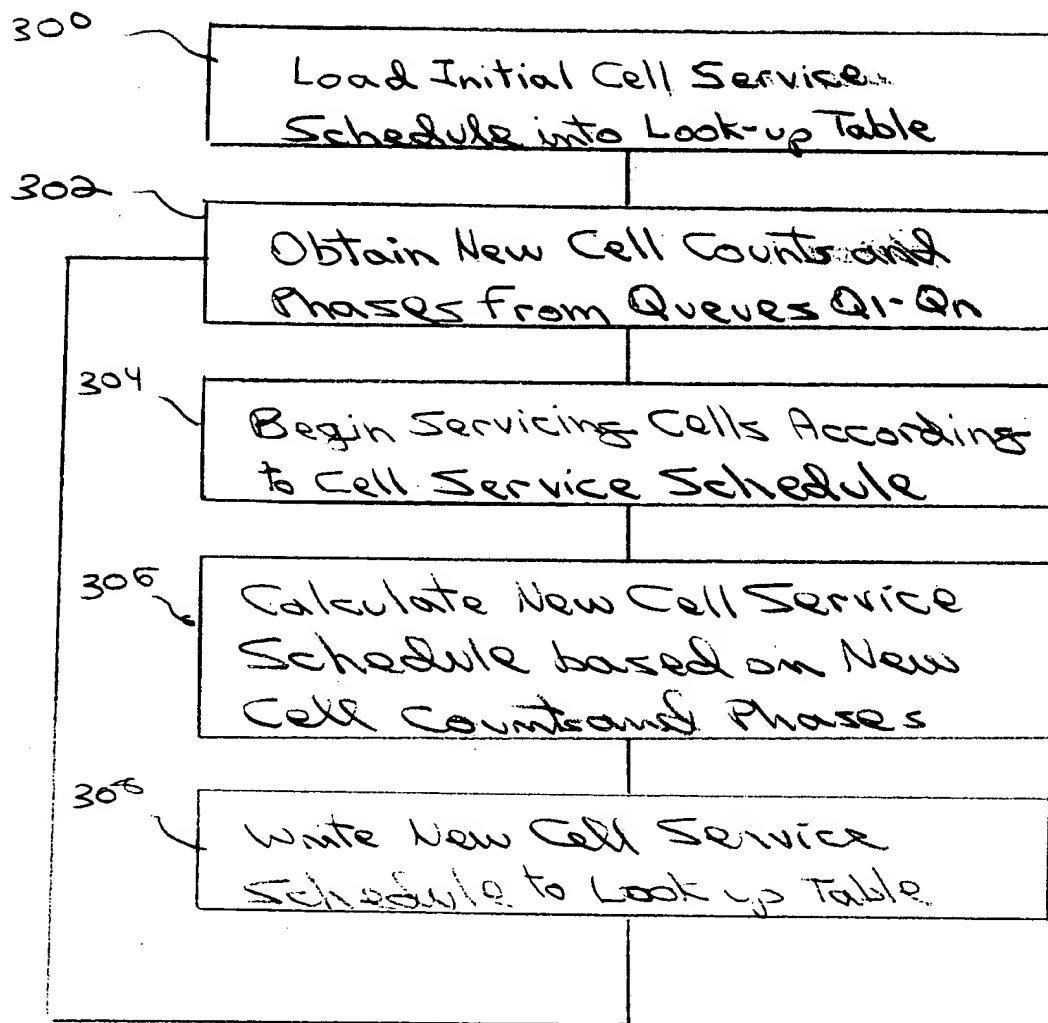 300
Load Initial Cell Service
Schedule into Look-up Table
302
Obtain New Cell Counts and
Phases From Queues Q1-Qn
304
Begin Servicing Cells According
to Cell Service Schedule
306
Calculate New Cell Service
Schedule based on New
Cell Counts and Phases
308
Write New Cell Service
Schedule to Look up Table